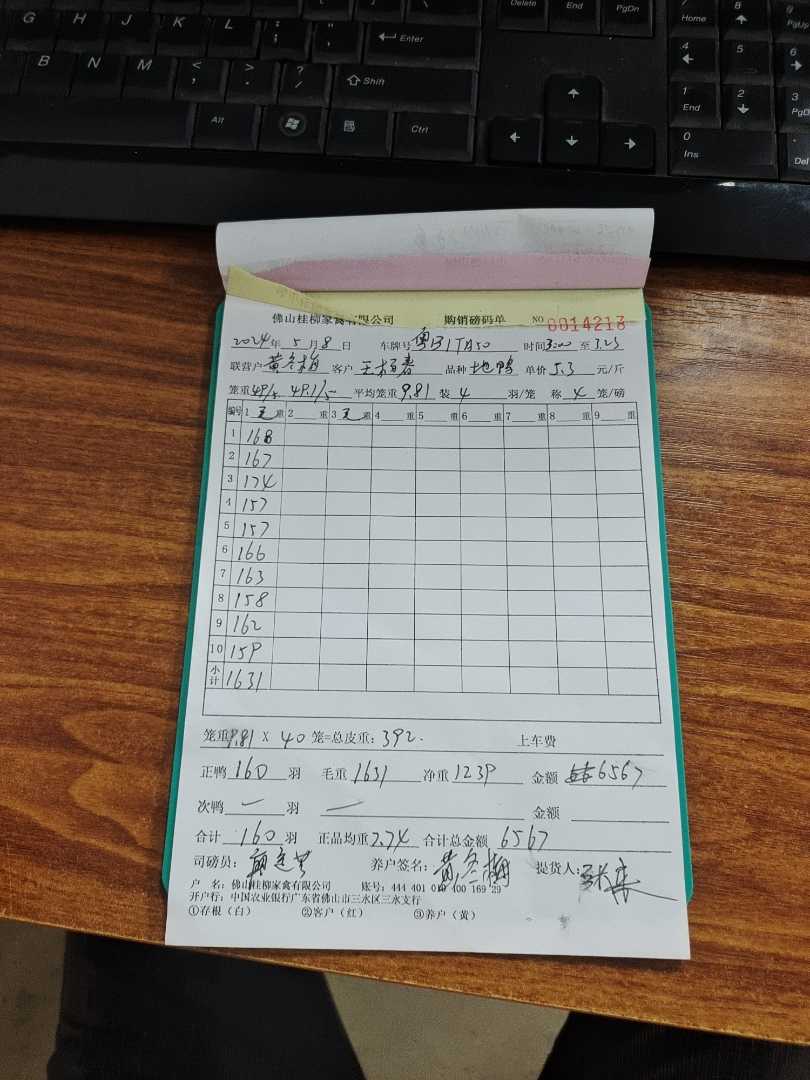 G H J K L : ; " ' Enter Delete End PgDn 7 Home 8 9 PgUp
B N M < , > . ? / Shift 4 5 6
Alt Ctrl 1 End 2 3 PgDn
0 Ins . Del
佛山桂柳家禽有限公司 购销磅码单 NO 0014213
2024年 5月 8日 车牌号 粤B1TA50 时间 3:00 至 3.23
联营户 黄冬梅 客户 王柏春 品种 地鸭 单价 5.3 元/斤
笼重 49/5 49.1/5 平均笼重 9.81 装 4 羽/笼 称 4 笼/磅
编号 1 重 2 重 3 重 4 重 5 重 6 重 7 重 8 重 9 重
1 168
2 167
3 174
4 157
5 157
6 166
7 163
8 158
9 162
10 159
小计 1631
笼重 9.81 X 40 笼=总皮重: 392. 上车费
正鸭 160 羽 毛重 1631 净重 1239 金额 6567
次鸭 一 羽 一 金额
合计 160 羽 正品均重 7.74 合计总金额 6567
司磅员: 养户签名: 黄冬梅 提货人:
户 名: 佛山桂柳家禽有限公司 账号: 444 401 010 400 169 29
开户行: 中国农业银行广东省佛山市三水区三水支行
①存根（白） ②客户（红） ③养户（黄）